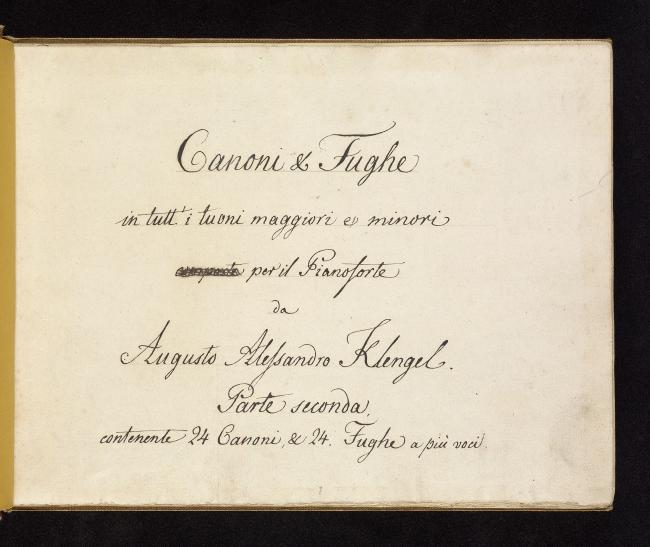 Canoni & Fughe
in tutt' i tuoni maggiori e minori
per il Pianoforte
da
Augusto Alessandro Klengel.
Parte seconda,
contenente 24 Canoni, & 24. Fughe a più voci.